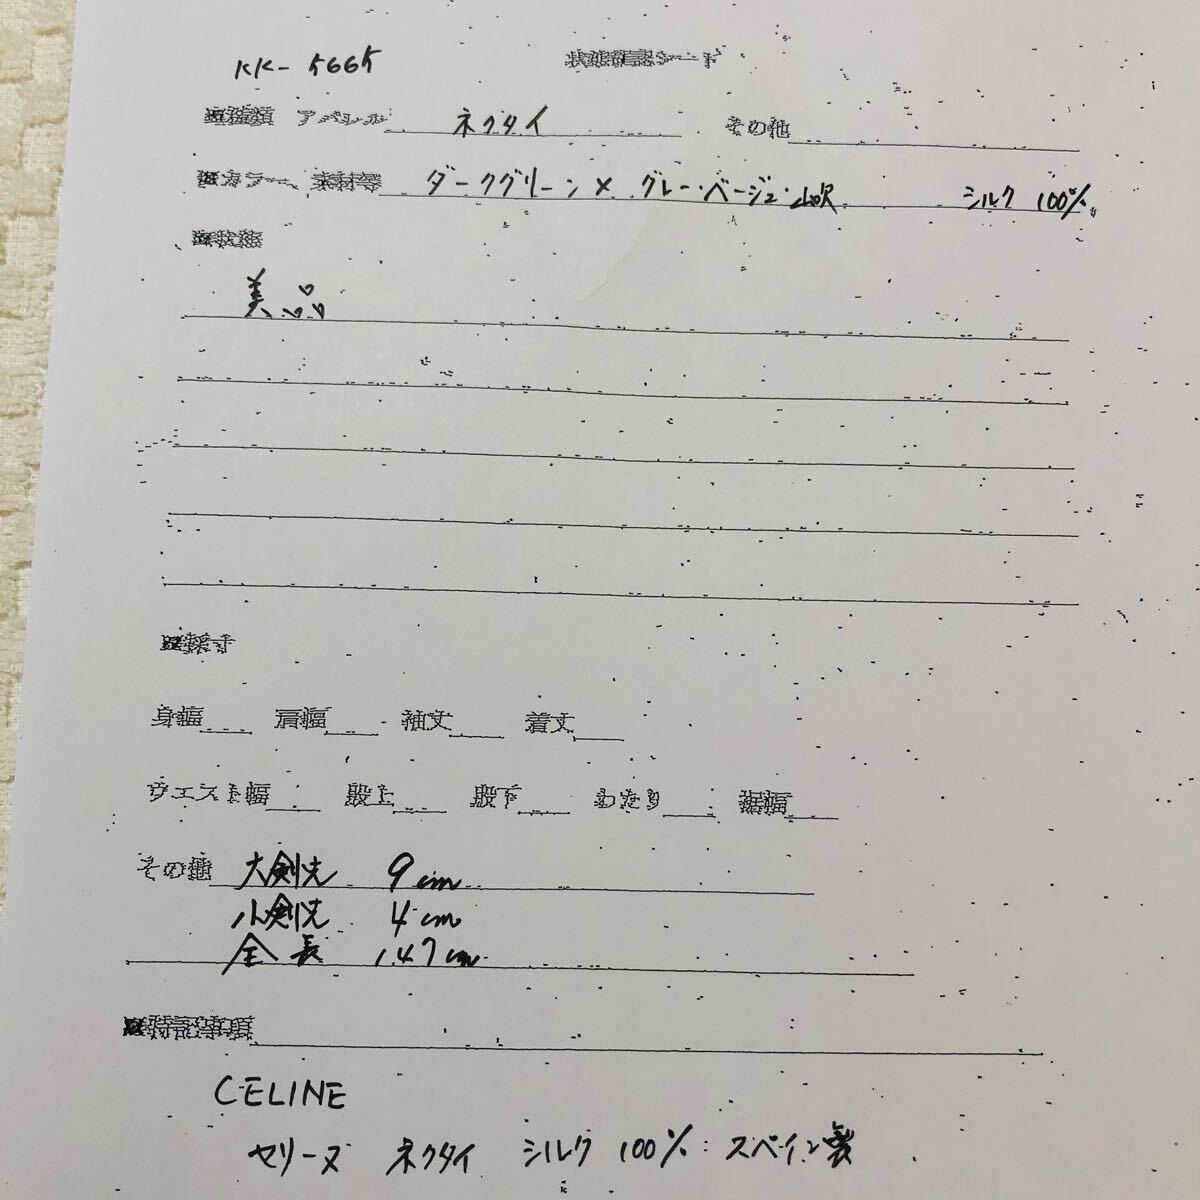 KK-5665 状態確認シート
■種類 アパレル ネクタイ その他
■カラー、素材等 ダークグリーン×グレー・ベージュ・山吹 シルク 100%
■状態
美品
■採寸
身幅 肩幅 袖丈 着丈
ウエスト幅 股上 股下 わたり 裾幅
その他 大剣先 9cm
小剣先 4cm
全長 147cm
■特記事項
CELINE
セリーヌ ネクタイ シルク 100% スペイン製